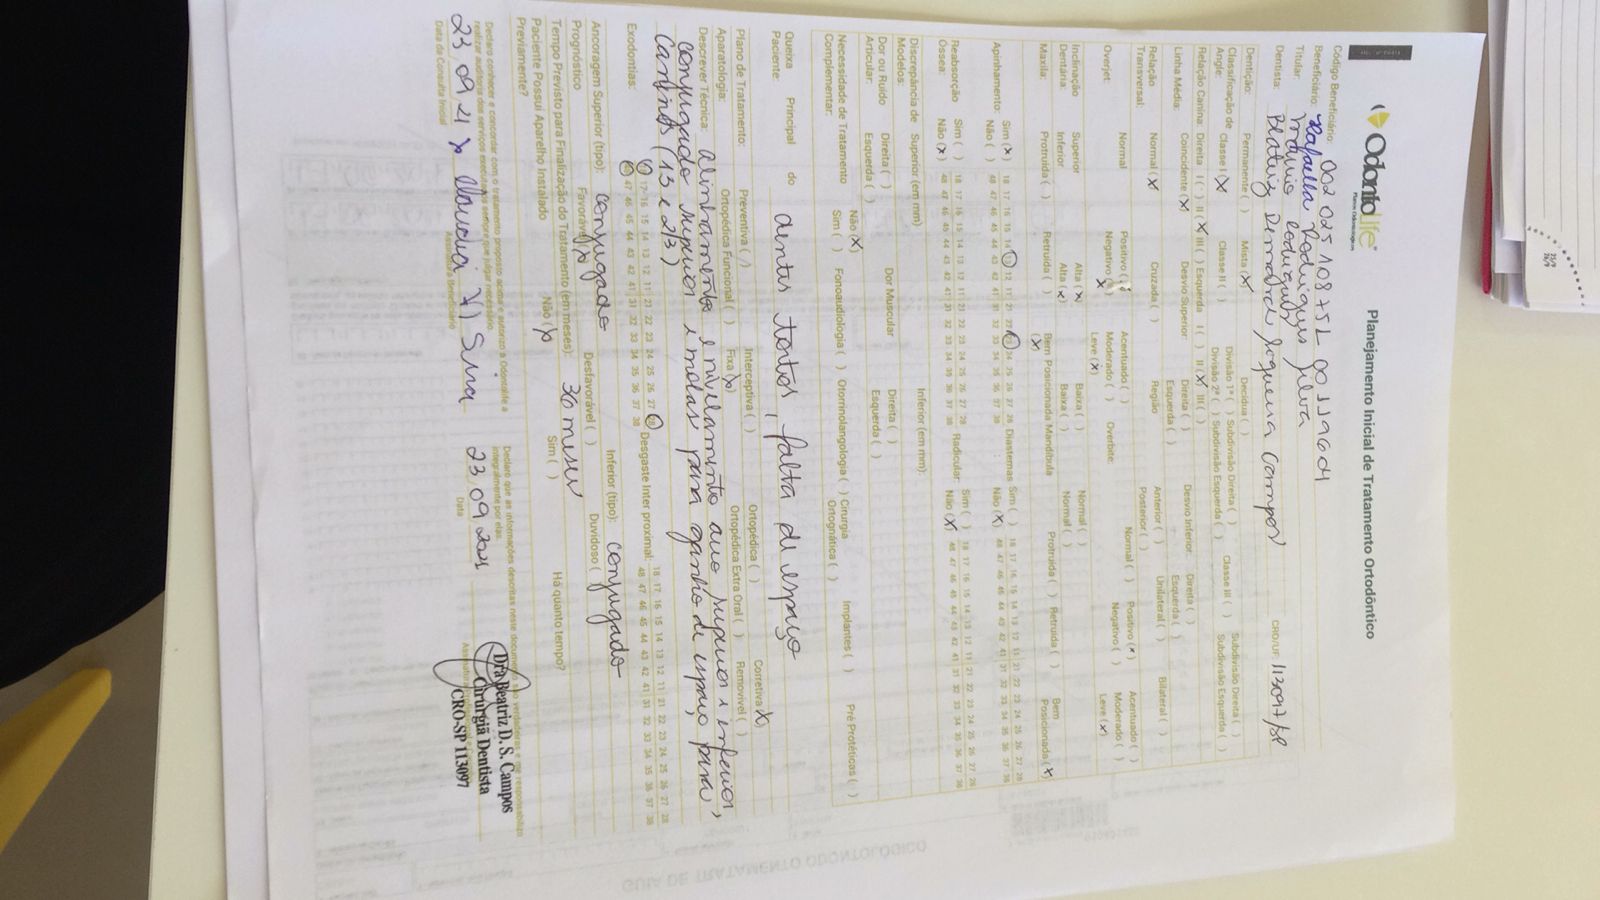 OdontoLife
Planos Odontológicos
Planejamento Inicial de Tratamento Ortodôntico
Código Beneficiário: 002 025 108751 00 119604
Beneficiário: Rafaella Rodrigues Silva
Titular:
Dentista: Beatriz CRO/UF: 113097/SP
Dentição: Permanente ( ) Mista (X) Decídua ( )
Classificação de Angle: Classe I (X) Classe II ( ) Divisão 1ª ( ) Subdivisão Direita ( ) Classe III ( ) Subdivisão Direita ( )
Divisão 2ª ( ) Subdivisão Esquerda ( ) Subdivisão Esquerda ( )
Relação Canina: Direita I ( ) II (X) III ( ) Esquerda I ( ) II (X) III ( )
Linha Média: Coincidente (X) Desvio Superior: Direita ( ) Esquerda ( ) Desvio Inferior: Direita ( ) Esquerda ( )
Relação Transversal: Normal (X) Cruzada ( ) Região Anterior ( ) Posterior ( ) Unilateral ( ) Bilateral ( )
Overjet: Normal Positivo ( ) Negativo Acentuado ( ) Moderado ( ) Leve (X) Overbite: Normal ( ) Positivo (x) Negativo ( ) Acentuado ( ) Moderado ( ) Leve (x)
Inclinação Dentária: Superior Alta (x) Baixa ( ) Normal ( )
Inferior Alta (x) Baixa ( ) Normal ( )
Maxila: Protruída ( ) Retruída ( ) Bem Posicionada (X) Mandíbula Protruída ( ) Retruída ( ) Bem Posicionada (X)
Apinhamento: Sim (x) 18 17 16 15 14 13 12 11 21 22 23 24 25 26 27 28 Diastemas Sim ( ) 18 17 16 15 14 13 12 11 21 22 23 24 25 26 27 28
Não ( ) 48 47 46 45 44 43 42 41 31 32 33 34 35 36 37 38 Não (X) 48 47 46 45 44 43 42 41 31 32 33 34 35 36 37 38
Reabsorção Óssea: Sim ( ) 18 17 16 15 14 13 12 11 21 22 23 24 25 26 27 28 Radicular: Sim ( ) 18 17 16 15 14 13 12 11 21 22 23 24 25 26 27 28
Não (x) 48 47 46 45 44 43 42 41 31 32 33 34 35 36 37 38 Não (X) 48 47 46 45 44 43 42 41 31 32 33 34 35 36 37 38
Discrepância de Modelos: Superior (em mm) Inferior (em mm):
Dor ou Ruído Articular: Direita ( ) Esquerda ( ) Dor Muscular Direita ( ) Esquerda ( )
Necessidade de Tratamento Complementar: Não (X) Sim ( ) Fonoaudiologia ( ) Otorrinolaringologia ( ) Cirurgia Ortognática ( ) Implantes ( ) Pré Protéticas ( )
Queixa Principal do Paciente: dentes tortos, falta de espaço
Plano de Tratamento: Preventiva ( ) Interceptiva ( ) Ortopédica ( ) Corretiva (X)
Aparatologia: Ortopédica Funcional ( ) Fixa (X) Ortopédica Extra Oral ( ) Removível ( )
Descrever Técnica: alinhamento e nivelamento arco superior e inferior,
conjugado superior e molas para ganho de espaço para
caninos (13 e 23)
Exodontias: 18 17 16 15 14 13 12 11 21 22 23 24 25 26 27 28 Desgaste Inter proximal: 18 17 16 15 14 13 12 11 21 22 23 24 25 26 27 28
48 47 46 45 44 43 42 41 31 32 33 34 35 36 37 38 48 47 46 45 44 43 42 41 31 32 33 34 35 36 37 38
Ancoragem Superior (tipo): conjugado Inferior (tipo): conjugado
Prognóstico Favorável (X) Desfavorável ( ) Duvidoso ( )
Tempo Previsto para Finalização do Tratamento (em meses): 36 meses
Paciente Possui Aparelho Instalado Previamente? Não (X) Sim ( ) Há quanto tempo?
Declaro conhecer e concordar com o tratamento proposto acima e autorizo a Odontolife a
realizar auditoria dos serviços executados sempre que julgar necessário.
Declaro que as informações descritas neste documento são verdadeiras e me responsabilizo
integralmente por elas.
23 09 21
Data da Consulta Inicial
Assinatura Beneficiário
23.09.2021
Data
Dra Beatriz D. S. Campos
Cirurgiã Dentista
CRO-SP 113097
GUIA DE TRATAMENTO ODONTOLÓGICO